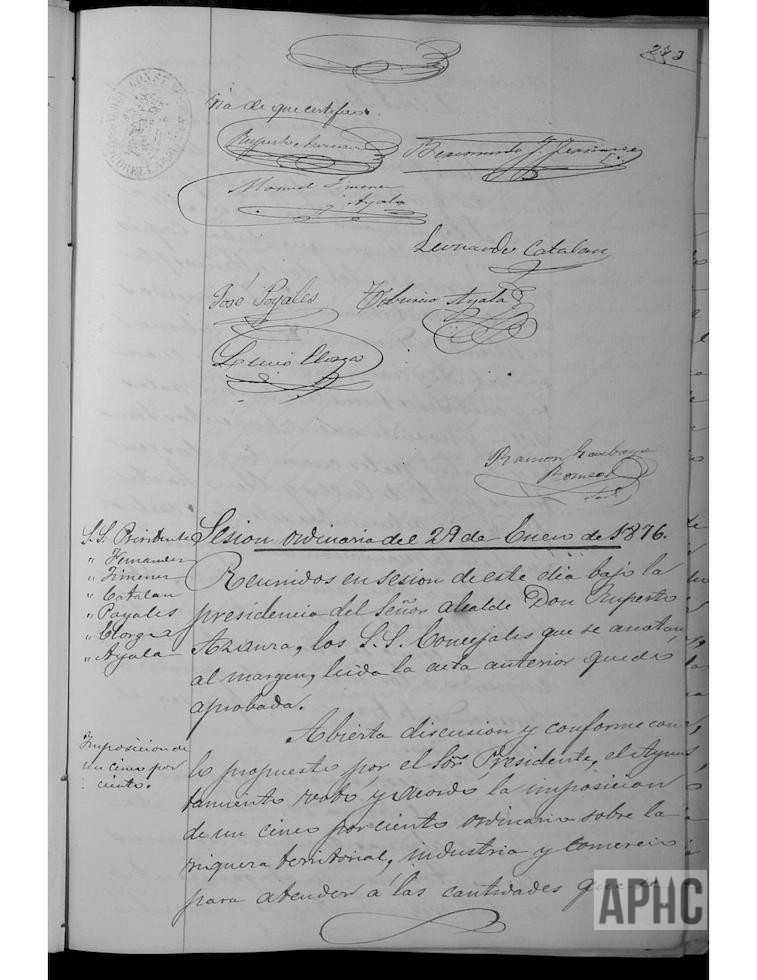 273
ria de que certifico.
Ruperto Aznarez
Leonardo Catalan
Manuel Jimenez
y Ayala
José Poyales
Tiburcio Ayala
Lucio Clorza
Ramon
Sesion ordinaria del 29 de Enero de 1876.
S.S. Presidente
" Fernandez
" Jimenez
" Catalan
" Poyales
" Clorza
" Ayala
Reunidos en sesion de este dia bajo la
presidencia del Señor alcalde Don Ruperto
los S.S. Concejales que se anotan
al margen, leida la acta anterior quedó
aprobada.
Imposicion de
un cinco por
ciento.
Abierta discusion y conforme con
lo propuesto por el Sor. Presidente, el Ayun
tamiento votó y acordó la imposicion
de un cinco por ciento ordinario sobre la
riqueza territorial, industria y comercio
para atender á las cantidades que se
APHC